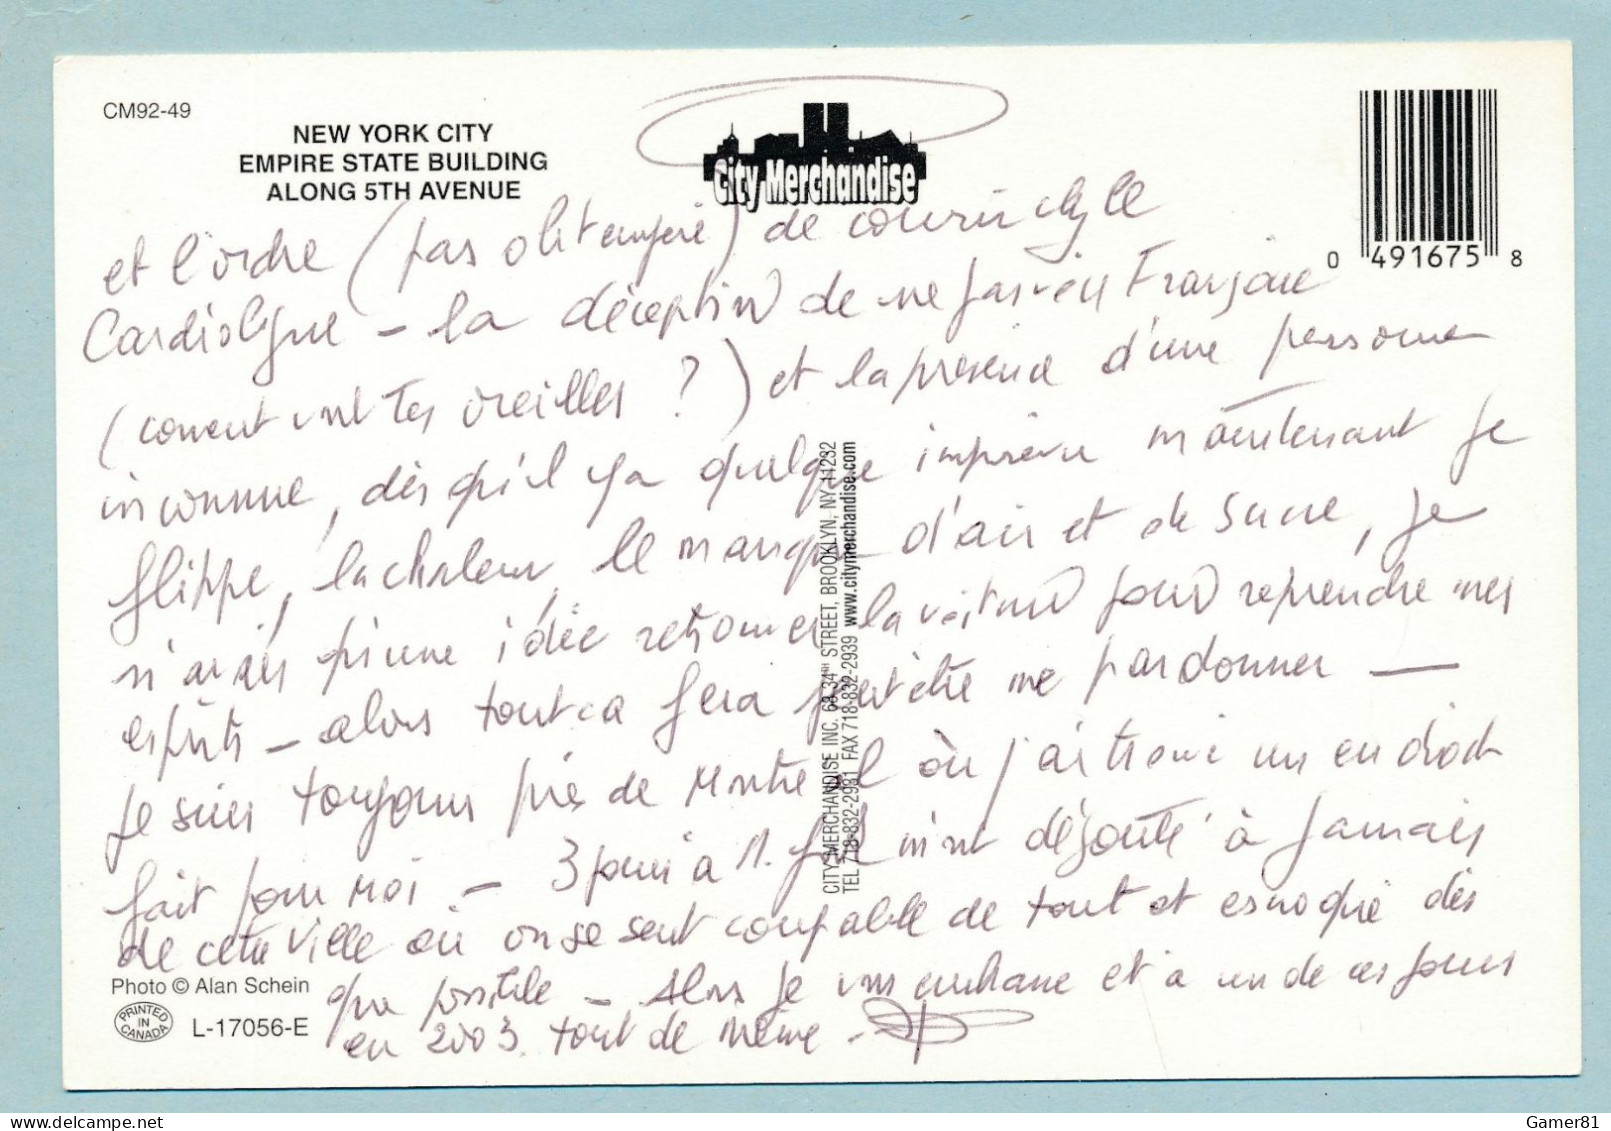 CM92-49
NEW YORK CITY
EMPIRE STATE BUILDING
ALONG 5TH AVENUE
City Merchandise
0 491675 8
et l'ordre (pas obtempéré) de courir chez le
Cardiologue - la déception de ne pas voir Françoise
(comment vont tes oreilles ?) et la présence d'une personne
inconnue, dès qu'il y a quelque imprévu maintenant je
flippe, la chaleur, le manque d'air et de sucre, je
n'avais qu'une idée retrouver la voiture pour reprendre mes
esprits - alors tout ça fera peut être me pardonner -
Je suis toujours près de Montréal où j'ai trouvé un endroit
fait pour moi - 3 jours à N. York m'ont dégoûté à jamais
de cette ville où on se sent coupable de tout et escroqué dès
que possible - Alors je vous embrasse et à un de ces jours
en 2003 tout de même -
CITY MERCHANDISE INC. 68 34TH STREET, BROOKLYN, NY 11232
TEL 718-832-2931 FAX 718-832-2939 www.citymerchandise.com
Photo © Alan Schein
PRINTED IN CANADA
L-17056-E
Gamer81